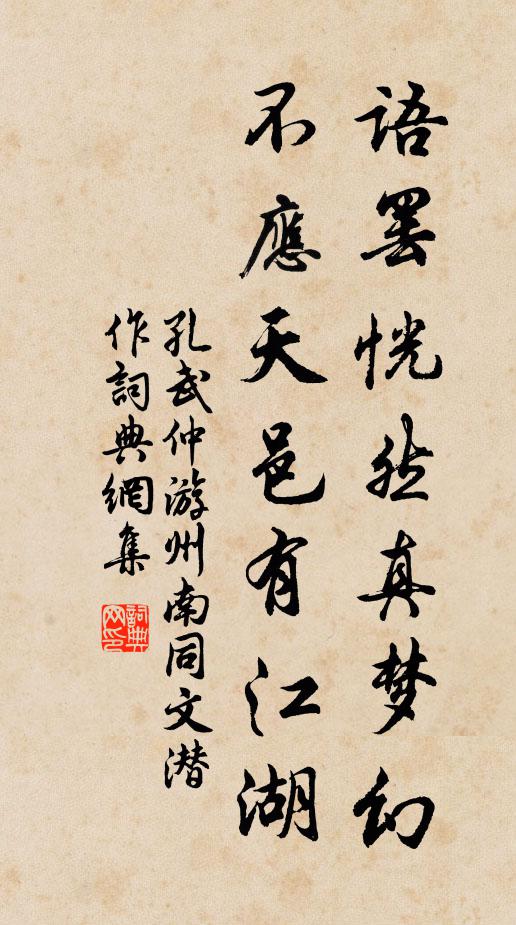 語罢恍然真梦幻
不應天邑有江湖
孔武仲游州南同文潜
作詞典網集
詞典网印